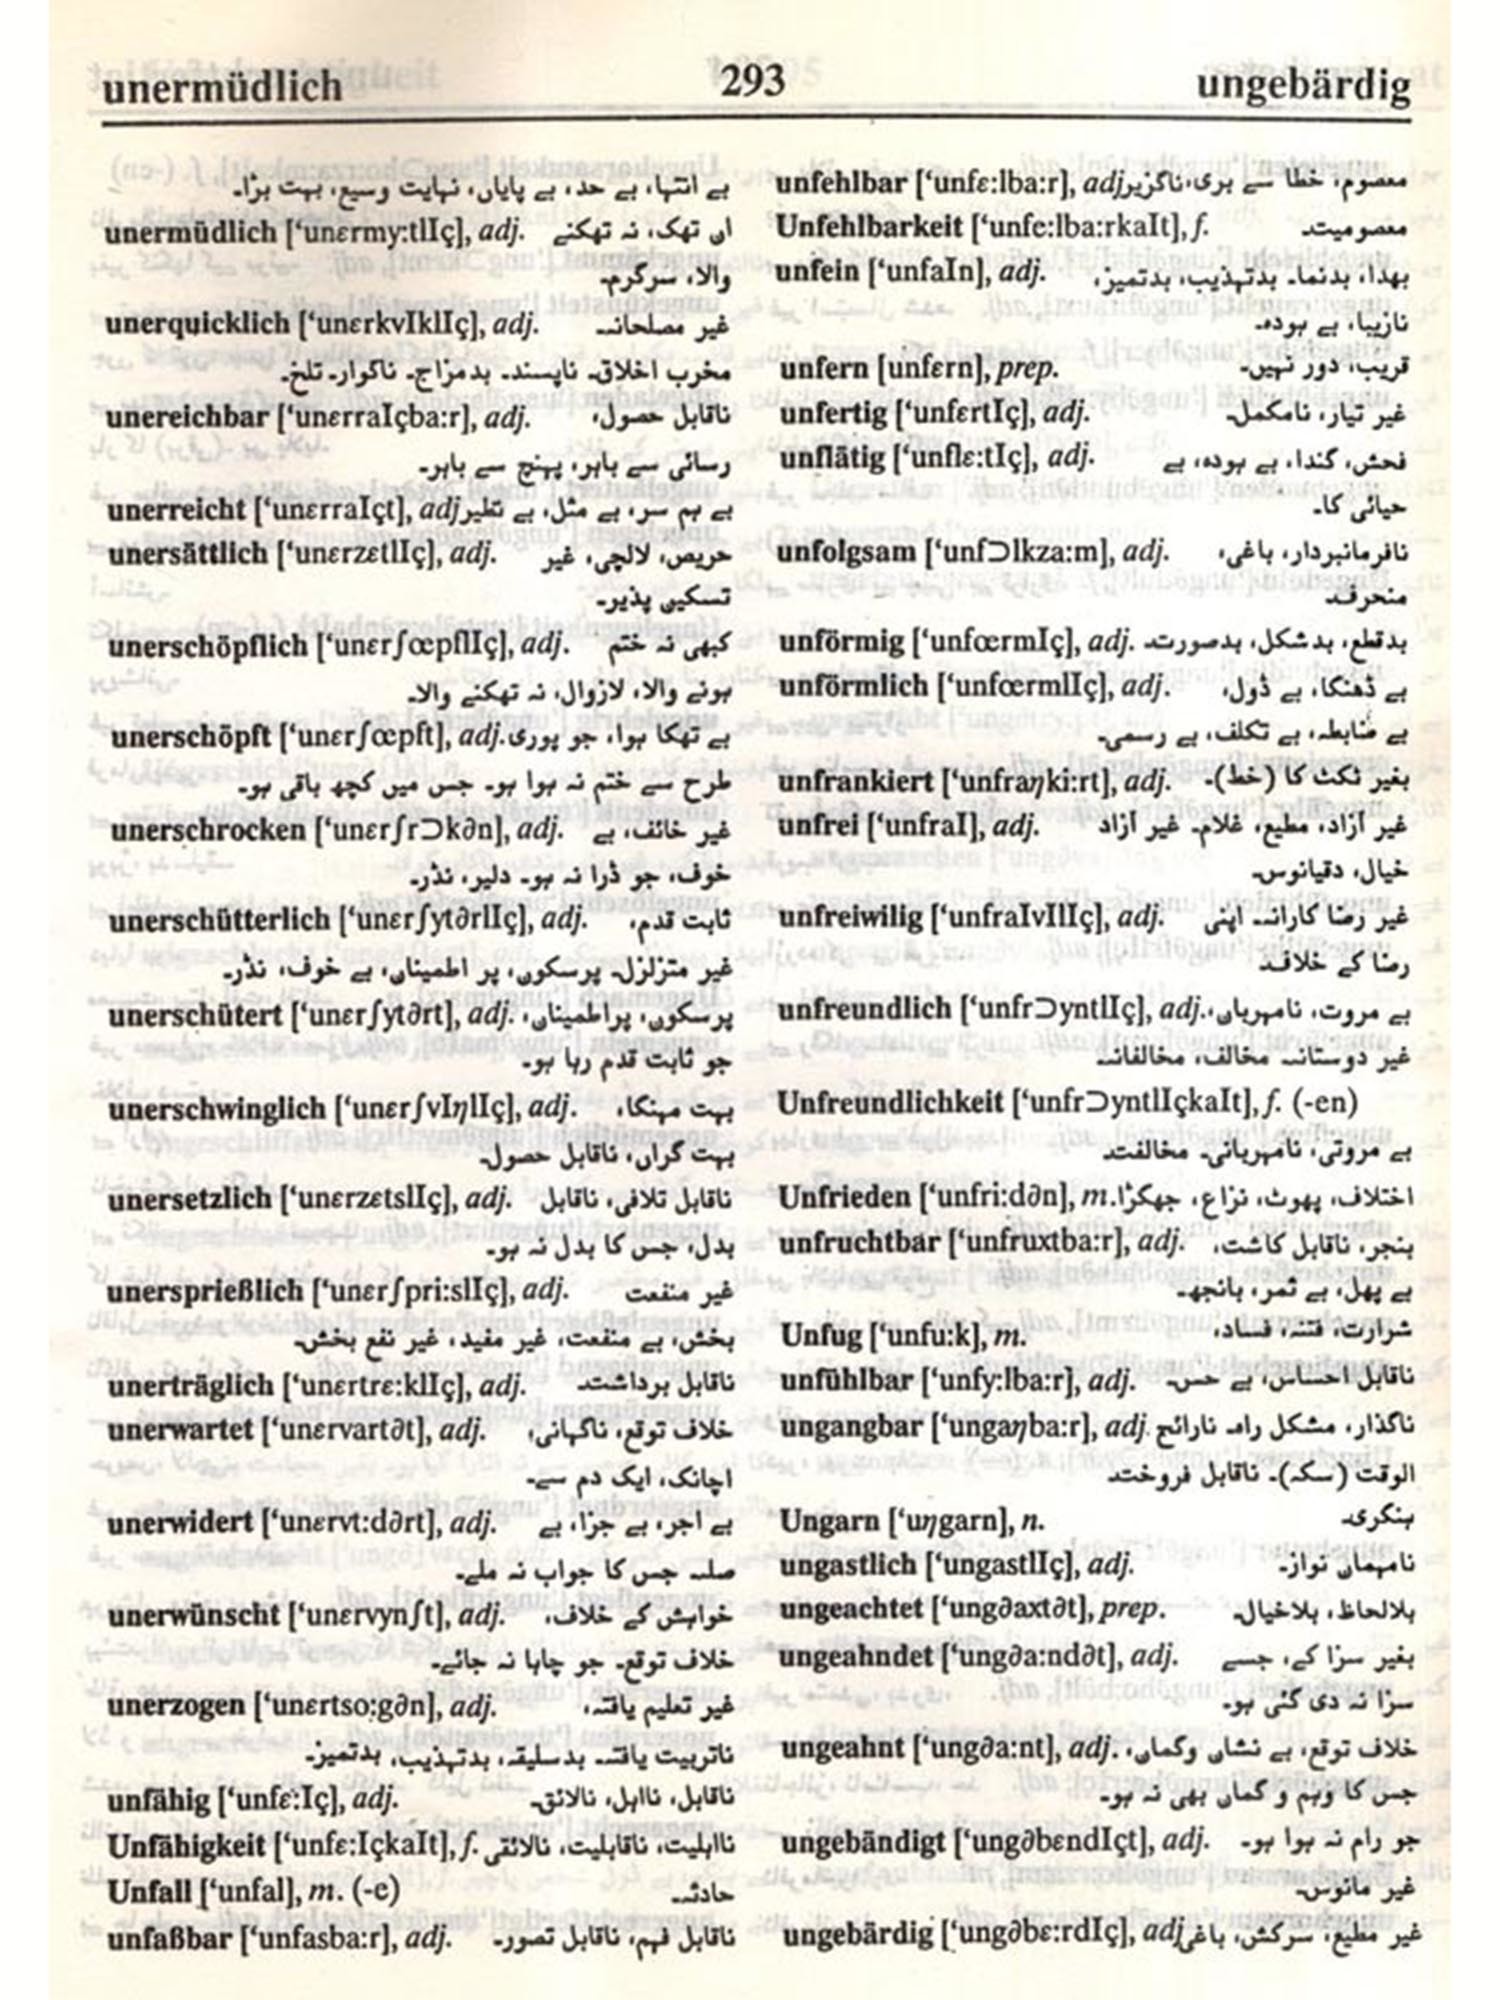 unermüdlich 293 ungebärdig
بے انتہا، بے حد، بے پایاں، نہایت وسیع، بہت بڑا۔
unermüdlich [‘unɛrmy:tlIç], adj. ان تھک، نہ تھکنے
والا، سرگرم۔
unerquicklich [‘unɛrkvIklIç], adj. غیر مصلحانہ۔
مخرب اخلاق۔ ناپسند۔ بدمزاج۔ ناگوار۔ تلخ۔
unereichbar [‘unɛrraIçba:r], adj. ناقابل حصول،
رسائی سے باہر، پہنچ سے باہر۔
unerreicht [‘unɛrraIçt], adj بے ہم سر، بے مثل، بے نظیر
unersättlich [‘unɛrzɛtlIç], adj. حریص، لالچی، غیر
تسکین پذیر۔
unerschöpflich [‘unɛrʃœpflIç], adj. کبھی نہ ختم
ہونے والا، لازوال، نہ تھکنے والا۔
unerschöpft [‘unɛrʃœpft], adj. بے تھکا ہوا، جو پوری
طرح سے ختم نہ ہوا ہو۔ جس میں کچھ باقی ہو۔
unerschrocken [‘unɛrʃrɔkən], adj. غیر خائف، بے
خوف، جو ڈرا نہ ہو۔ دلیر، نڈر۔
unerschütterlich [‘unɛrʃytərlIç], adj. ثابت قدم،
غیر متزلزل۔ پرسکون، پر اطمینان، بے خوف، نڈر۔
unerschütert [‘unɛrʃytərt], adj. پرسکون، پراطمینان،
جو ثابت قدم رہا ہو۔
unerschwinglich [‘unɛrʃvIŋlIç], adj. بہت مہنگا،
بہت گراں، ناقابل حصول۔
unersetzlich [‘unɛrzɛtslIç], adj. ناقابل تلافی، ناقابل
بدل، جس کا بدل نہ ہو۔
unersprießlich [‘unɛrʃpri:slIç], adj. غیر منفعت
بخش، بے منفعت، غیر مفید، غیر نفع بخش۔
unerträglich [‘unɛrtrɛ:klIç], adj. ناقابل برداشت۔
unerwartet [‘unɛrvartət], adj. خلاف توقع، ناگہانی،
اچانک، ایک دم سے۔
unerwidert [‘unɛrvt:dərt], adj. بے اجر، بے جزا، بے
صلہ۔ جس کا جواب نہ ملے۔
unerwünscht [‘unɛrvynʃt], adj. خواہش کے خلاف،
خلاف توقع۔ جو چاہا نہ جائے۔
unerzogen [‘unɛrtso:gən], adj. غیر تعلیم یافتہ،
ناتربیت یافتہ۔ بدسلیقہ، بدتہذیب، بدتمیز۔
unfähig [‘unfɛ:Iç], adj. ناقابل، نااہل، نالائق۔
Unfähigkeit [‘unfɛ:IçkaIt], f. نااہلیت، ناقابلیت، نالائقی
Unfall [‘unfal], m. (-e) حادثہ۔
unfaßbar [‘unfasba:r], adj. ناقابل فہم، ناقابل تصور۔
unfehlbar [‘unfɛ:lba:r], adj معصوم، خطا سے بری، ناگزیر
Unfehlbarkeit [‘unfe:lba:rkaIt], f. معصومیت۔
unfein [‘unfaIn], adj. بھدا، بدنما۔ بدتہذیب، بدتمیز،
نازیبا، بے ہودہ۔
unfern [unfɛrn], prep. قریب، دور نہیں۔
unfertig [‘unfɛrtIç], adj. غیر تیار، نامکمل۔
unflätig [‘unflɛ:tIç], adj. فحش، گندا، بے ہودہ، بے
حیائی کا۔
unfolgsam [‘unfɔlkza:m], adj. نافرمانبردار، باغی،
منحرف۔
unförmig [‘unfœrmIç], adj. بدقطع، بدشکل، بدصورت۔
unförmlich [‘unfœrmlIç], adj. بے ڈھنگا، بے ڈول،
بے ضابطہ، بے تکلف، بے رسمی۔
unfrankiert [‘unfraŋki:rt], adj. بغیر ٹکٹ کا (خط)۔
unfrei [‘unfraI], adj. غیر آزاد، مطیع، غلام۔ غیر آزاد
خیال، دقیانوس۔
unfreiwilig [‘unfraIvIlIç], adj. غیر رضا کارانہ۔ اپنی
رضا کے خلاف۔
unfreundlich [‘unfrɔyntlIç], adj. بے مروت، نامہربان،
غیر دوستانہ۔ مخالف، مخالفانہ۔
Unfreundlichkeit [‘unfrɔyntlIçkaIt], f. (-en)
بے مروتی، نامہربانی۔ مخالفت۔
Unfrieden [‘unfri:dən], m. اختلاف، پھوٹ، نزاع، جھگڑا
unfruchtbar [‘unfruxtba:r], adj. بنجر، ناقابل کاشت،
بے پھل، بے ثمر، بانجھ۔
Unfug [‘unfu:k], m. شرارت، فتنہ، فساد،
unfühlbar [‘unfy:lba:r], adj. ناقابل احساس، بے حس۔
ungangbar [‘ungaŋba:r], adj. ناگذار، مشکل راہ۔ نارائج
الوقت (سکہ)۔ ناقابل فروخت۔
Ungarn [‘uŋgarn], n. ہنگری۔
ungastlich [‘ungastlIç], adj. نامہمان نواز۔
ungeachtet [‘ungəaxtət], prep. بلالحاظ، بلاخیال۔
ungeahndet [‘ungəa:ndət], adj. بغیر سزا کے، جسے
سزا نہ دی گئی ہو۔
ungeahnt [‘ungəa:nt], adj. خلاف توقع، بے نشان وگمان،
جس کا وہم و گمان بھی نہ ہو۔
ungebändigt [‘ungəbɛndIçt], adj. جو رام نہ ہوا ہو۔
غیر مانوس۔
ungebärdig [‘ungəbɛ:rdIç], adj غیر مطیع، سرکش، باغی